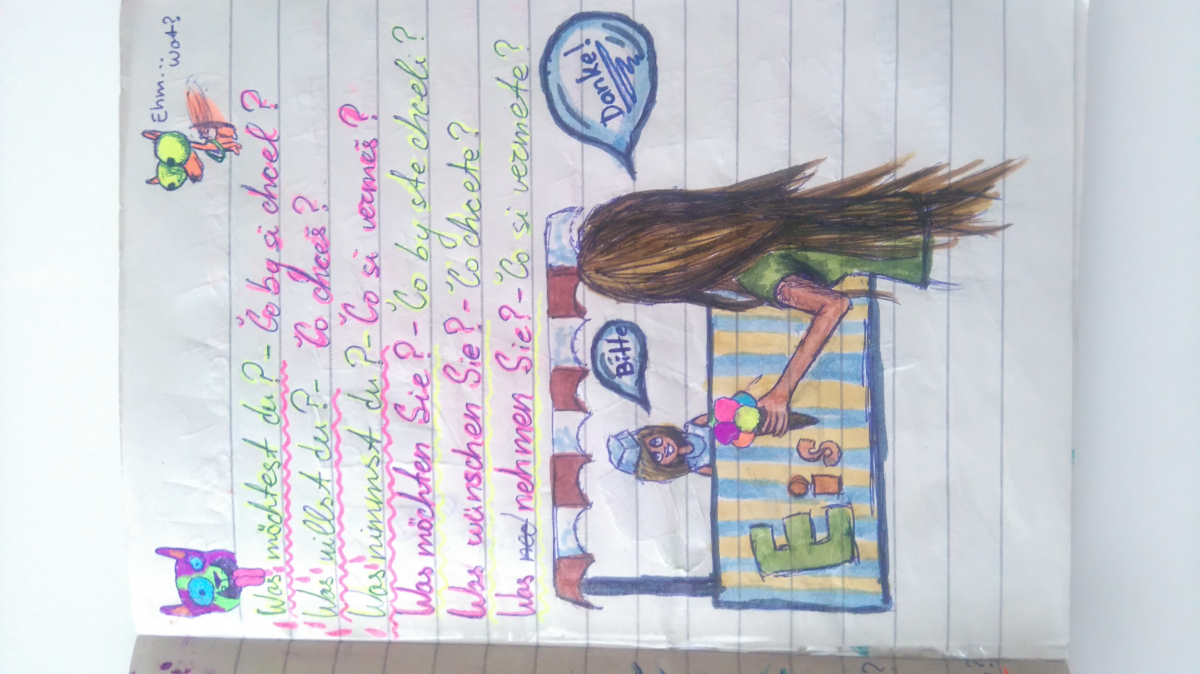 Ehm... Wot?
Was möchtest du? - Čo by si chcel?
Was willst du? - Čo chceš?
Was nimmst du? - Čo si vezmeš?
Was möchten Sie? - Čo by ste chceli?
Was wünschen Sie? - Čo chcete?
Was nehmen Sie? - Čo si vezmete?
Danke!
Bitte
Eis